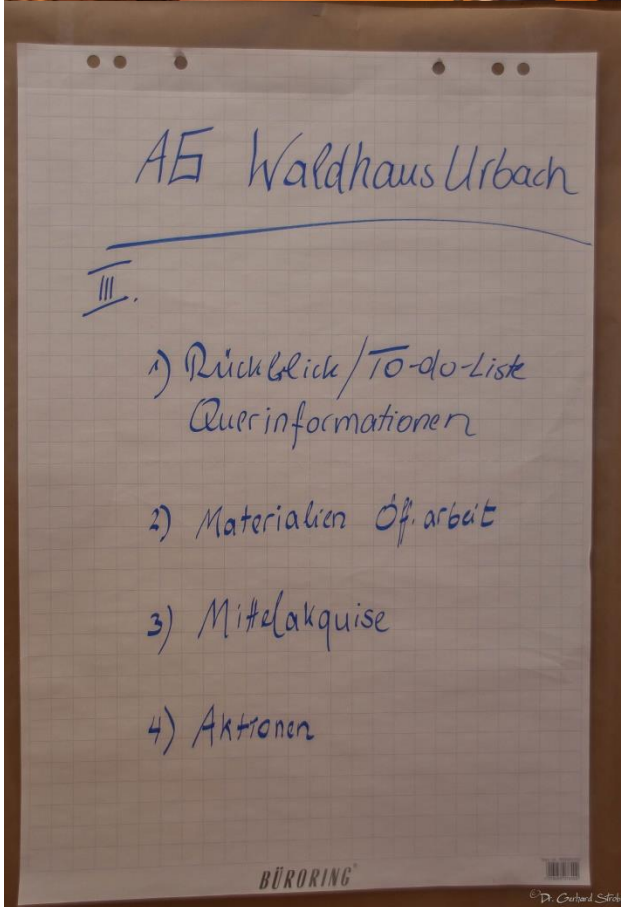 AG Waldhaus Urbach
III.
1) Rückblick/To-do-Liste
Querinformationen
2) Materialien Öff. arbeit
3) Mittelakquise
4) Aktionen
BÜRORING
©Dr. Gerhard Strob